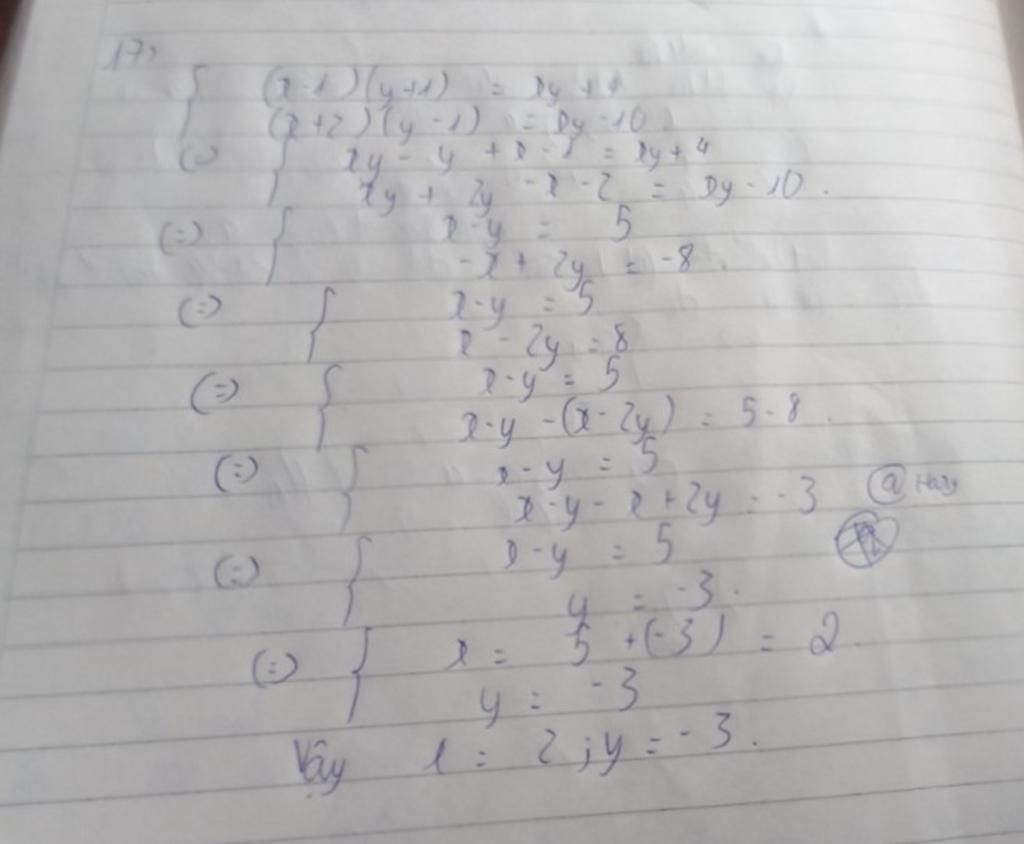 17)
(x-1)(y+1) = xy+4
(x+2)(y-1) = xy-10.
(=) xy - y + x - 1 = xy + 4
xy + 2y - x - 2 = xy - 10.
(=) x-y = 5
-x + 2y = -8.
(=) x-y = 5
x - 2y = 8
(=) x-y = 5
x-y -(x-2y) = 5-8.
(=) x-y = 5
x-y-x+2y = -3 @
(=) x-y = 5
y = -3.
(=) x = 5 +(-3) = 2.
y = -3
Vậy x = 2 ; y = -3.